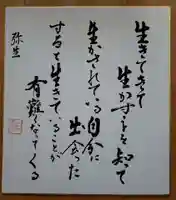 生きてきて
生かすことを知って
生かされている自分に
出会った
すると生きていることが
有難くなってくる
弥生